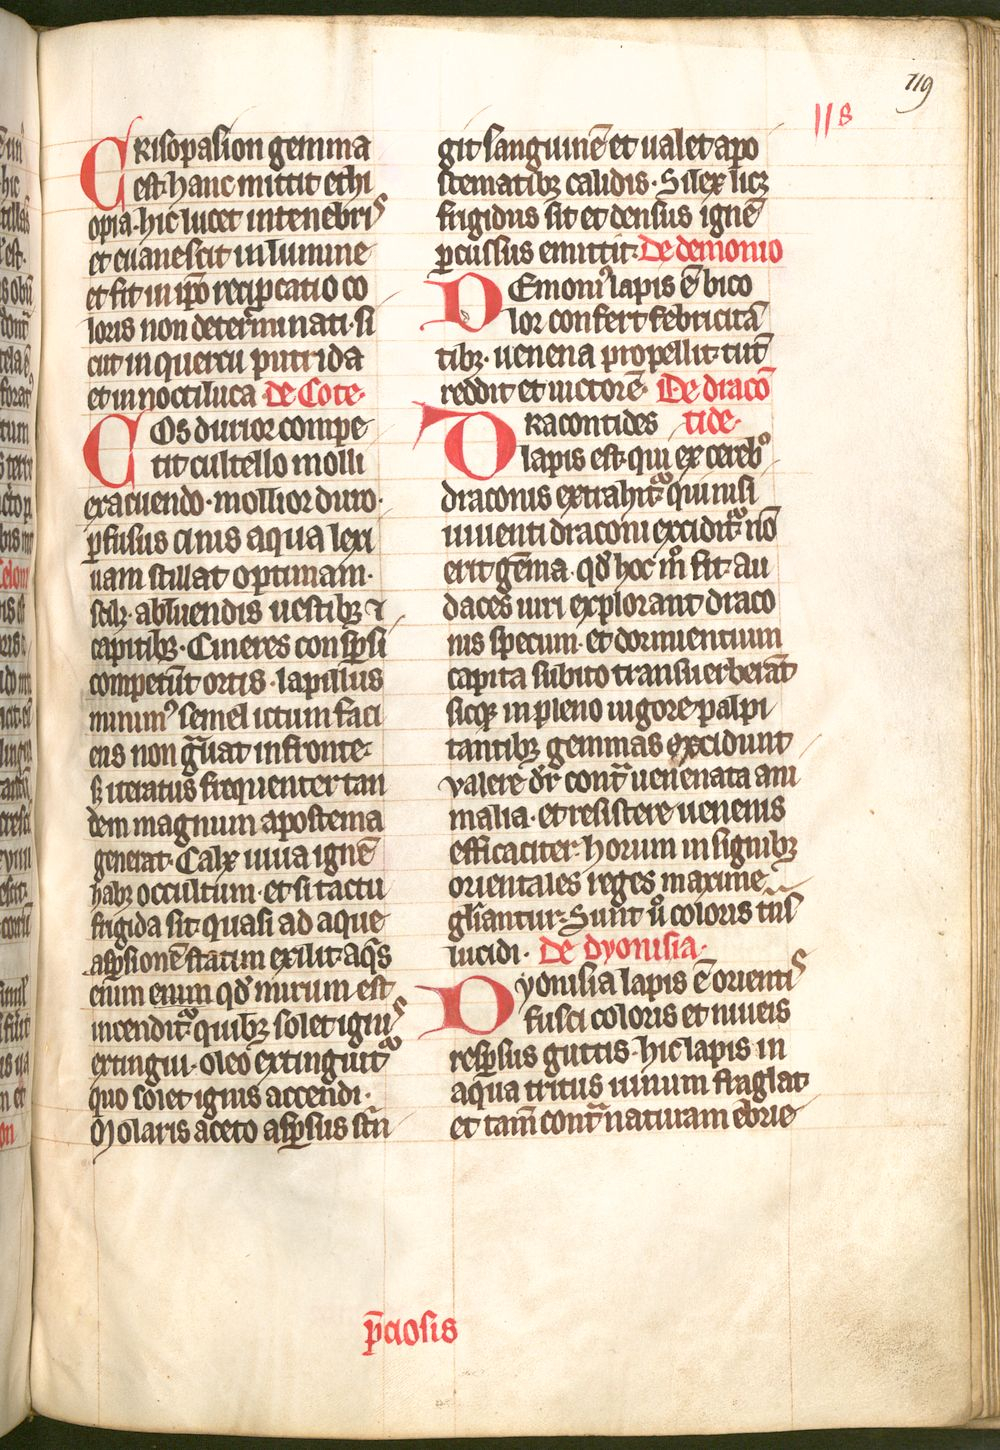 119
118
Crisopasion gemma
est· hanc mittit ethi
opia· hic lucet in tenebris
et euanescit in lumine
et fit in ip̅o recip̲catio co
loris non determinati· si
cut in quercu putrida
et in noctiluca de Cote·
Cos durior compe
tit cultello molli
exacuendo· mollior duro·
ꝑfusus cinis aqua lexi
uam stillat optimam·
scilꝫ· abluendis uestibꝫ ⁊
capitibꝫ· Cineres consp̲si
competūt ortis· lapillus
minimꝰ semel ictum faci
ens non gͣuat in fronte·
sꝫ iteratus frequenter tan
dem magnum apostema
generat· Calx uiua ignē
habꝫ occultum· et si tactu
frigida sit· quasi ad aque
asp̲sionē statim exilit· aq̄s
enim enim qd̕ mirum est
incendit᷑ quibꝫ solet ignis
extingui· oleo extinguit᷑
quo solet ignis accendi·
Molaris aceto asp̲sus strī
git sanguinē et ualet apo
stematibꝫ calidis· Silex licꝫ
frigidus sit et densus ignē
ꝑcussus emittit· De demonio
Demoniꝰ lapis ē bico
lor confert febricitā
tibꝫ· uenena propellit· tut̄
reddit et uictorē· De dracō
Dracontides tide·
lapis est· qui ex cerebº
draconis extrahit᷑ qui nisi
uiuenti draconi excidit᷑ nō
erit gēma· qd̕ hoc mº fit· au
daces uiri explorant draco
nis specum· et dormientium
capita subito transuerberāt
sicqꝫ in pleno uigore palpi
tantibꝫ gemmas excidunt
valere dr̄ contͣ uenenata ani
malia· et resistere uenenis
efficaciter· horum insignibꝫ
orientales reges maxime
gl̄iantur· Sunt uº coloris tn̄s
lucidi· De dyonisia·
Dyonisia lapis ē orientis
fusci coloris et niueis
resp̲sus guttis· hic lapis in
aqua tritus uinum fraglat
et tam̄ contͣ naturam ebrie
p̄ciosis